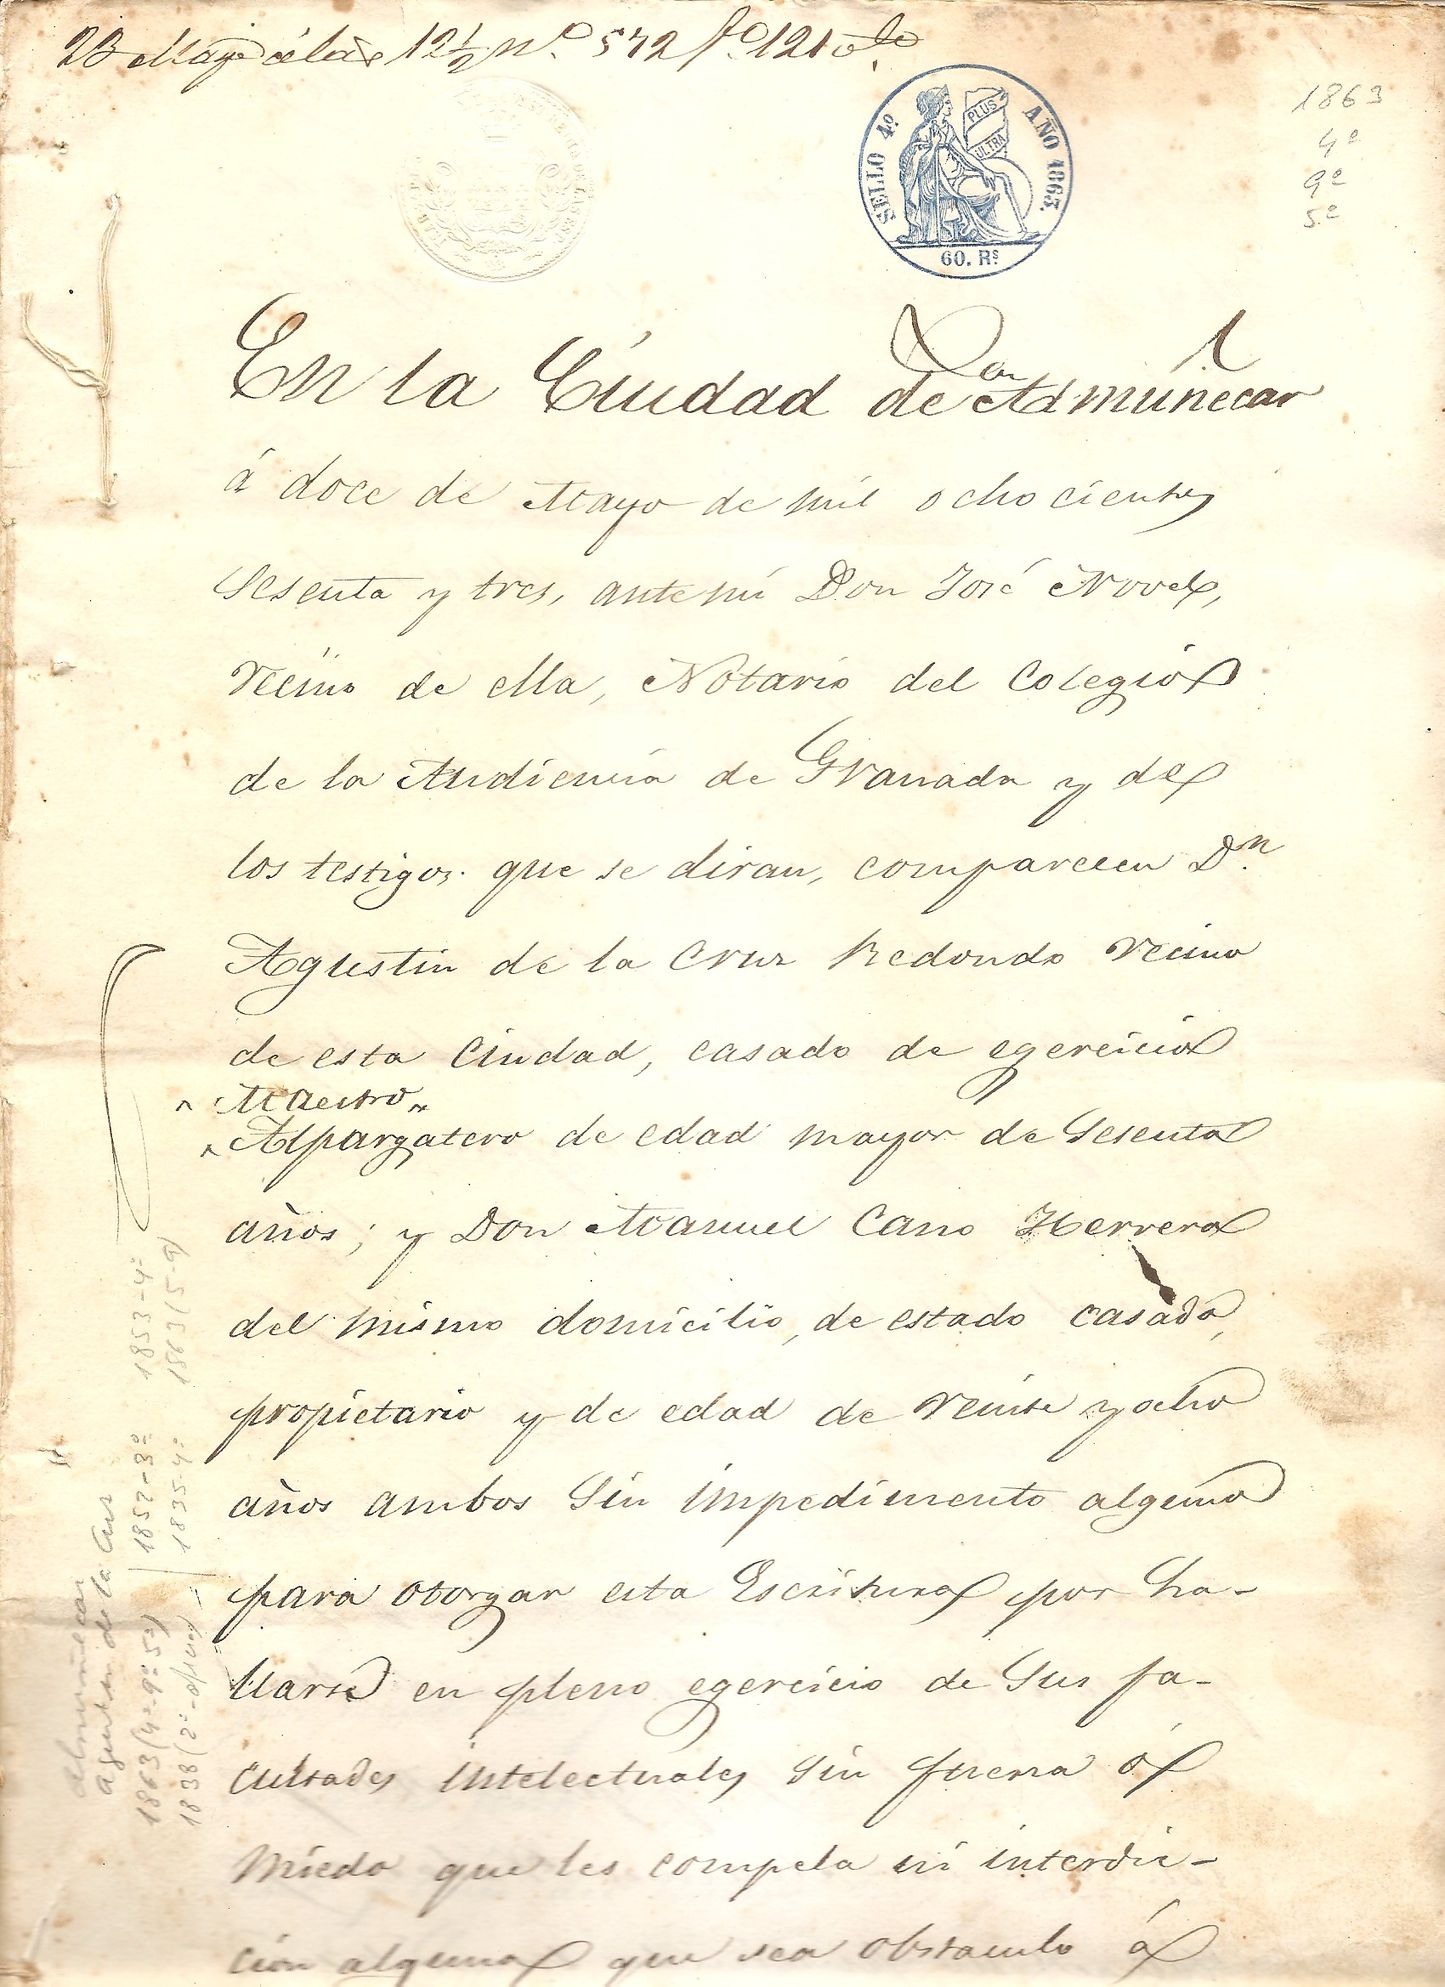 23 Mayo á las 12½ nº 572 fº 121 vto
SELLO 4º AÑO 1863.
PLUS
ULTRA
60. Rˢ
1863
4º
9º
5º
En la Ciudad de Almuñecar
á doce de Mayo de mil ochocientos
Sesenta y tres, ante mí Don José Novel,
vecino de ella, Notario del Colegio
de la Audiencia de Granada y de
los testigos que se diran, comparecen Dⁿ
Agustin de la Cruz Redondo vecino
de esta Ciudad, casado de egercicio
Maestro
Alpargatero de edad mayor de Sesenta
años; y Don Manuel Cano Herrera
del mismo domicilio, de estado casado,
propietario y de edad de veinte y ocho
años ambos Sin impedimento alguno
para otorgar esta Escritura por ha-
llarse en pleno egercicio de Sus fa-
cultades intelectuales Sin fuerza ó
miedo que les compela ni interdic-
ción alguna que sea obstaculo á
Almuñecar
Agustin de la Cruz
1863 (4º-9º-5º) 1852-3º 1853-4º
1838 (2º 1835-4º 1863 (5-9)